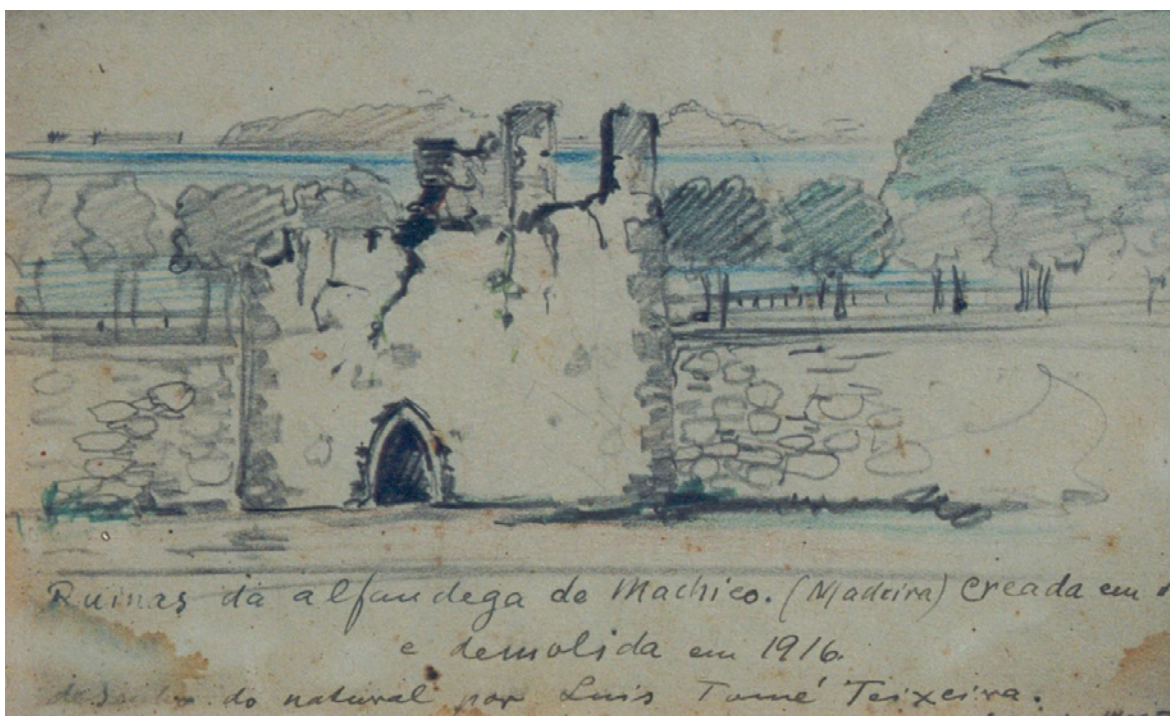 Ruinas da alfandega de Machico. (Madeira) Creada em
e demolida em 1916.
do natural por Luis Tomé Teixeira.